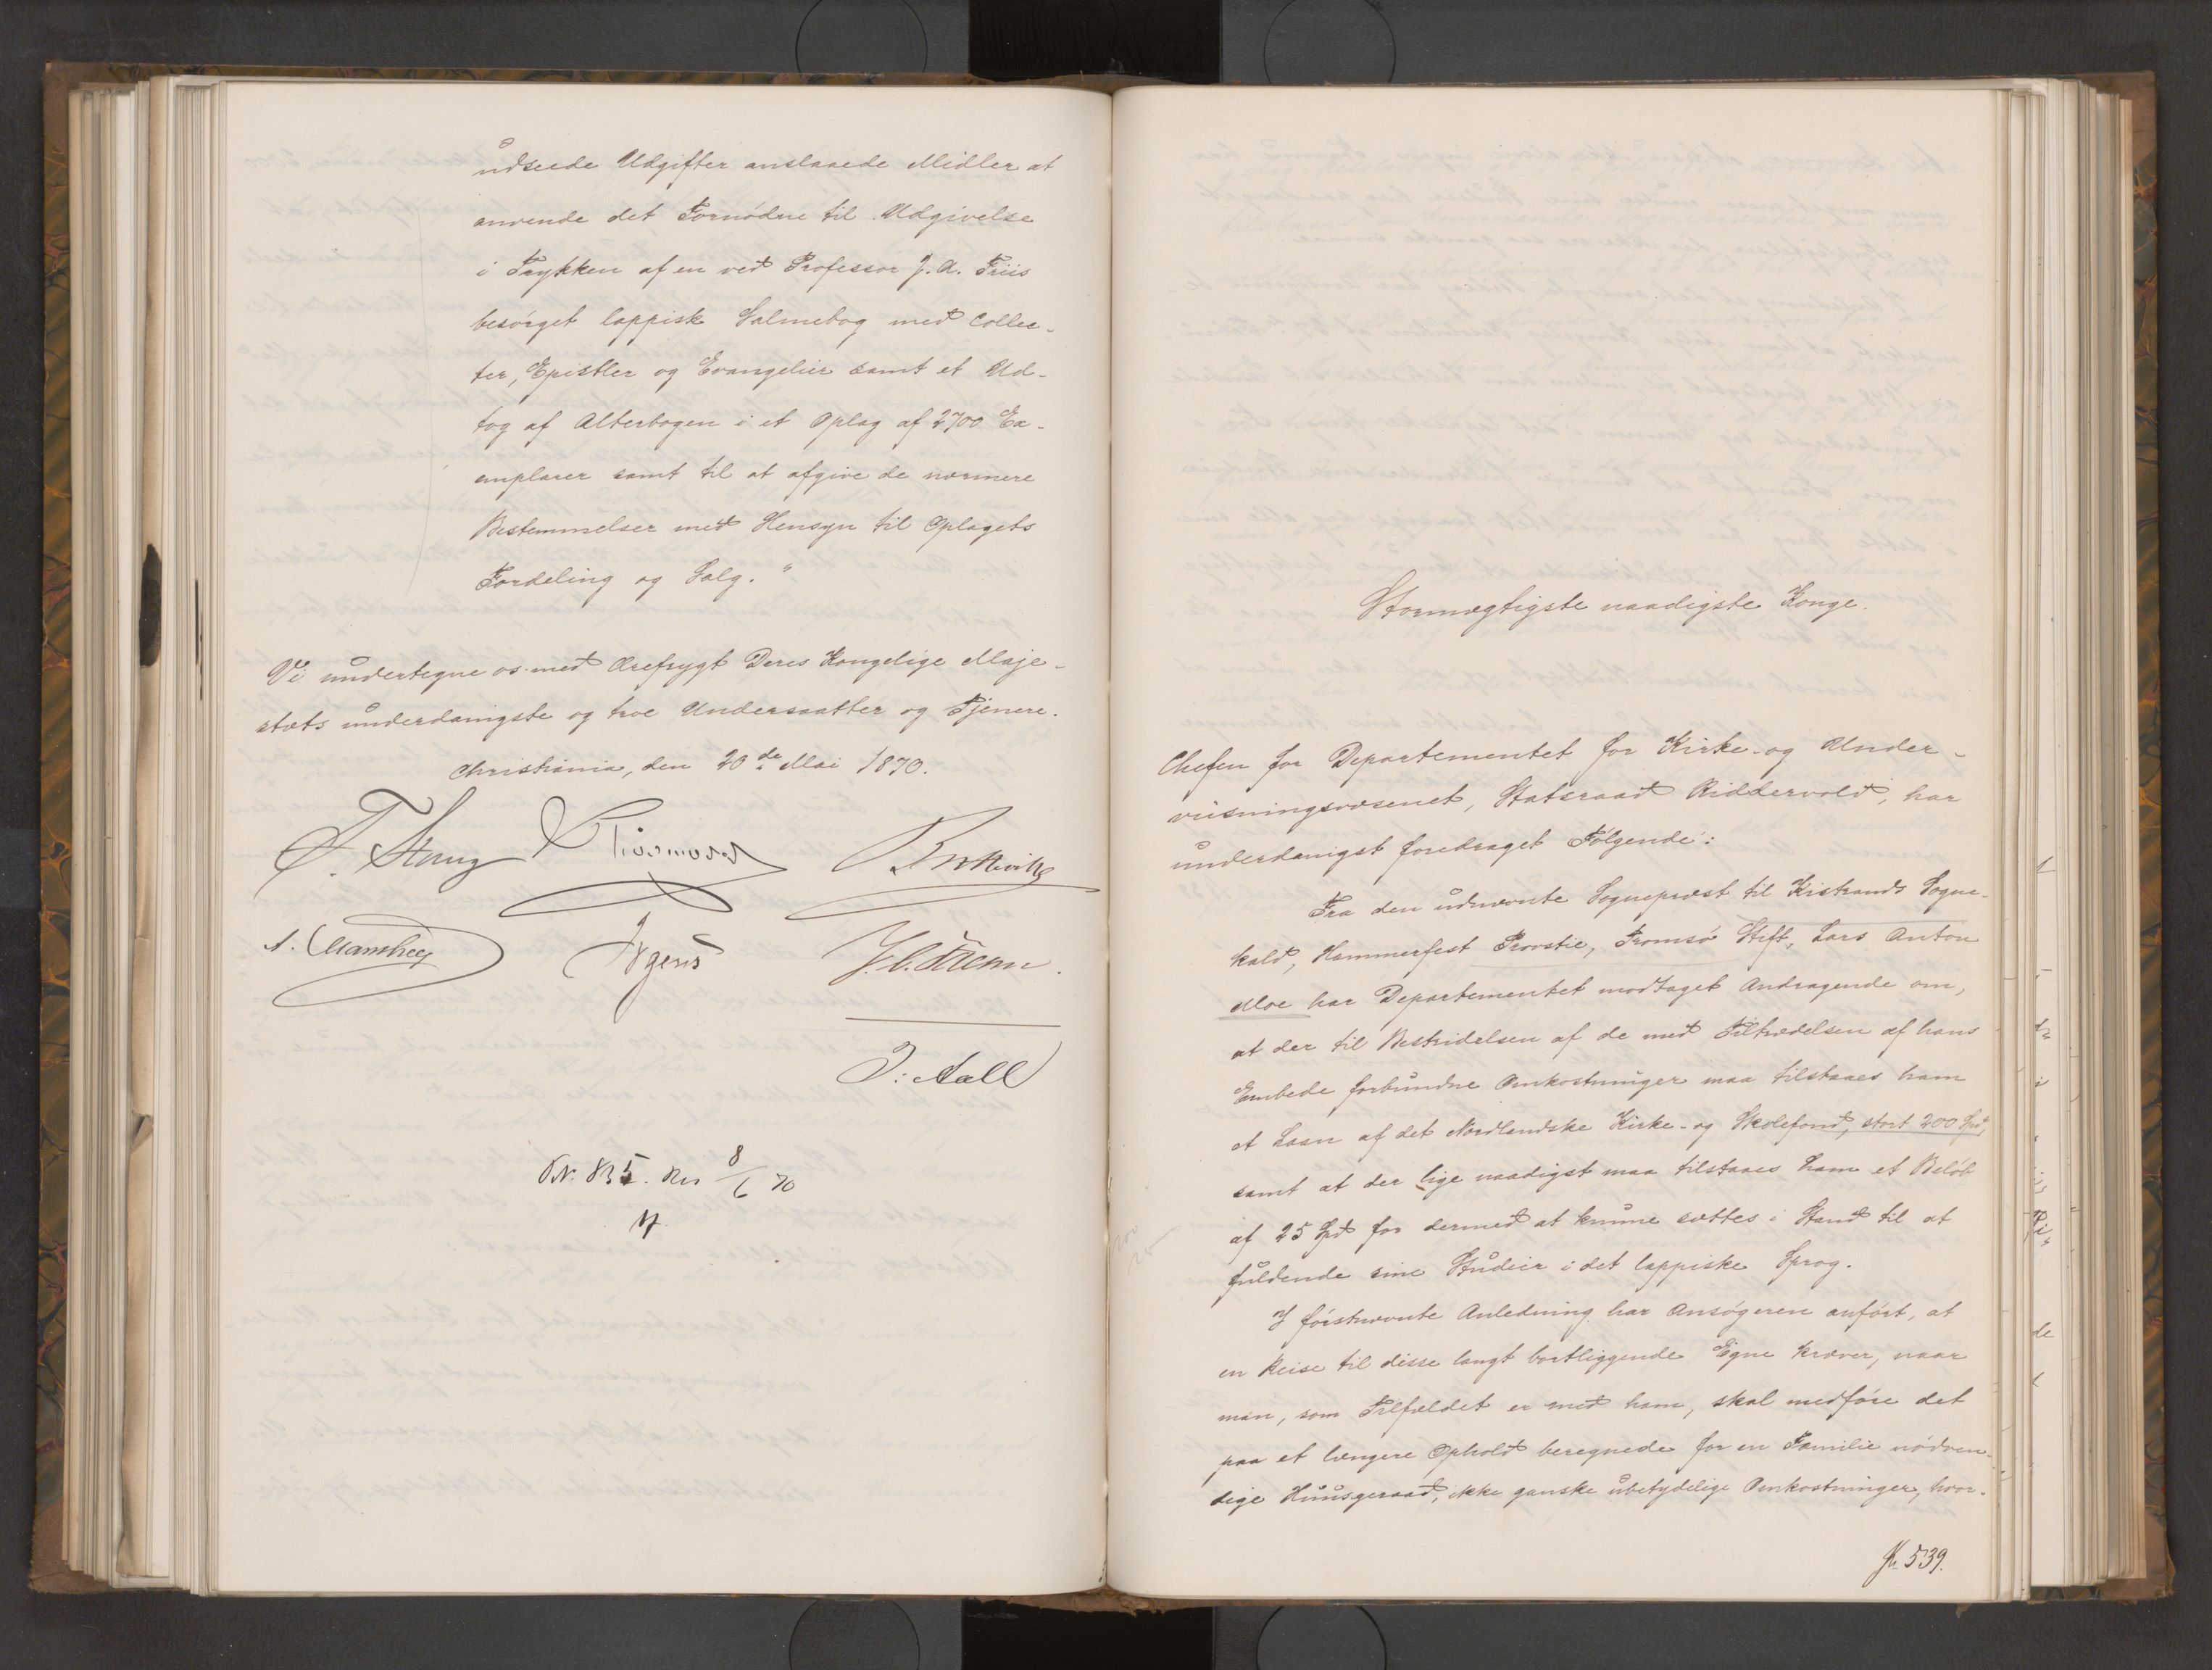 udseede Udgifter anslaaede Midler at
anvende det Fornødne til Udgivelse
i Trykken af en ved Professor J. A. Friis
besørget lappisk Salmebog med Collec-
ter, Epistler og Evangelier samt et Ud-
tog af Alterbogen i et Oplag af 2700 Ex-
emplarer samt til at afgive de nærmere
Bestemmelser med Hensyn til Oplagets
Fordeling og Salg."
Vi undertegne os med Ærefrygt Deres Kongelige Maje-
stæts underdanigste og troe Undersaatter og Tjenere.
Christiania, den 20de Mai 1870.
F. Stang
A. Manthey
J. Aall
No. 835. Res 8/6 70
Stormægtigste naadigste Konge.
Chefen for Departementet for Kirke- og Under-
viisningsvæsenet, Statsraad Riddervold, har
underdanigst foredraget Følgende:
Fra den udnævnte Sognepræst til Kistrands Sogne-
kald, Hammerfest Provstie, Tromsø Stift, Lars Anton
Moe har Departementet modtaget Andragende om,
at der til Bestridelsen af de med Tiltrædelsen af hans
Embede forbundne Omkostninger maa tilstaaes ham
et Laan af det Nordlandske Kirke- og Skolefond, stort 200 Spd,
samt at der lige naadigst maa tilstaaes ham et Beløb
af 25 Spd for dermed at kunne sættes i Stand til at
fuldende sine Studier i det lappiske Sprog.
I førstnævnte Anledning har Ansøgeren anført, at
en Reise til disse langt bortliggende Egne kræver, naar
man, som Tilfældet er med ham, skal medføre det
paa et længere Ophold beregnede for en Familie nødven-
dige Huusgeraad, ikke ganske ubetydelige Omkostninger, hvor-
200
25
539.